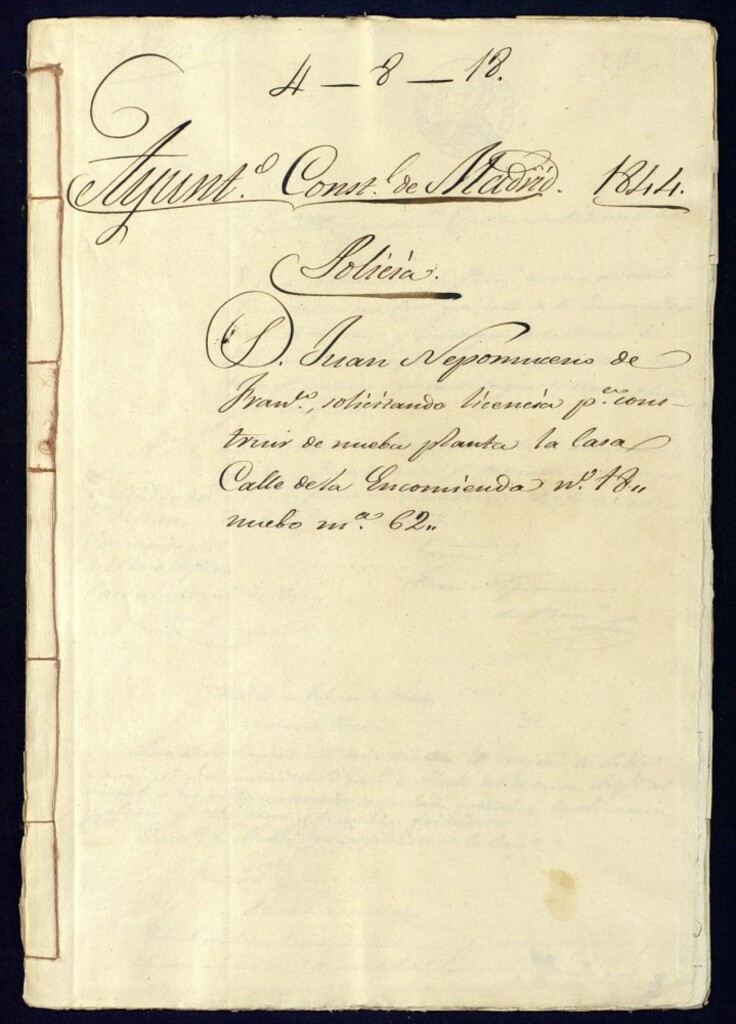 4 — 8 — 18.
Ayunt.º Const.l de Madrid. 1844.
Policia.
D. Juan Nepomuceno de
solicitando licencia p.ª cons-
truir de nueba planta la Casa
Calle de la Encomienda n.º 18,,
nuebo m.ª 62,,